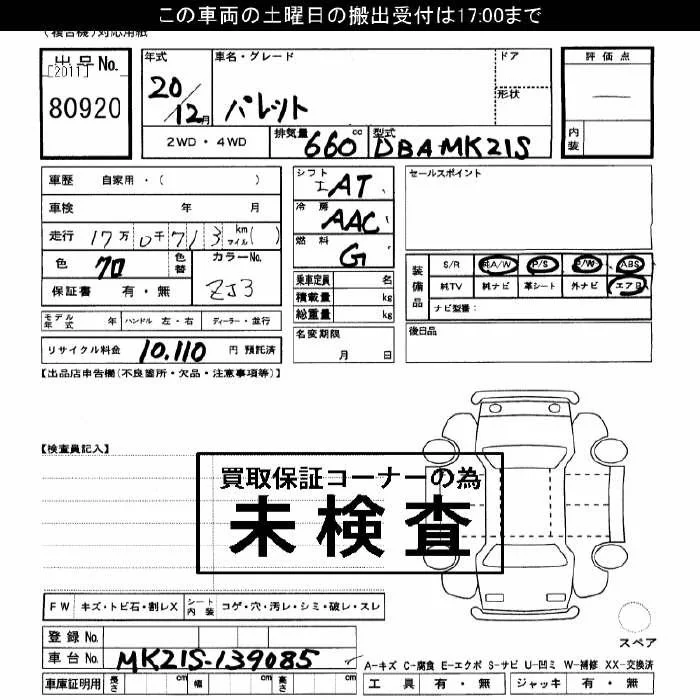 この車両の土曜日の搬出受付は17:00まで
(複合機)対応用紙
出品No.
[2011]
80920
年式
20/12月
車名・グレード
パレット
ドア
形状
2WD・4WD
排気量 660 cc
型式 DBA-MK21S
評価点
内装
車歴 自家用・( )
車検 年 月
走行 17万0千713 km マイル( )
色 クロ
色替
カラーNo.
ZJ3
保証書 有・無
モデル年式 年 ハンドル 左・右 ディーラー・並行
リサイクル料金 10,110 円 預託済
シフト
AT
冷房
AAC
燃料
G
乗車定員 名
積載量 kg
総重量 kg
名変期限
月 日
セールスポイント
装備品
S/R 純A/W P/S P/W ABS
純TV 純ナビ 革シート 外ナビ エアB
ナビ型番:
後日品
【出品店申告欄(不良箇所・欠品・注意事項等)】
【検査員記入】
買取保証コーナーの為
未検査
FW キズ・トビ石・割レX シート内装 コゲ・穴・汚レ・シミ・破レ・スレ
登録No.
車台No. MK21S-139085
車庫証明用 長さ cm 幅 cm 高さ cm
スペア
A-キズ C-腐食 E-エクボ S-サビ U-凹ミ W-補修 XX-交換済
工具 有・無 ジャッキ 有・無